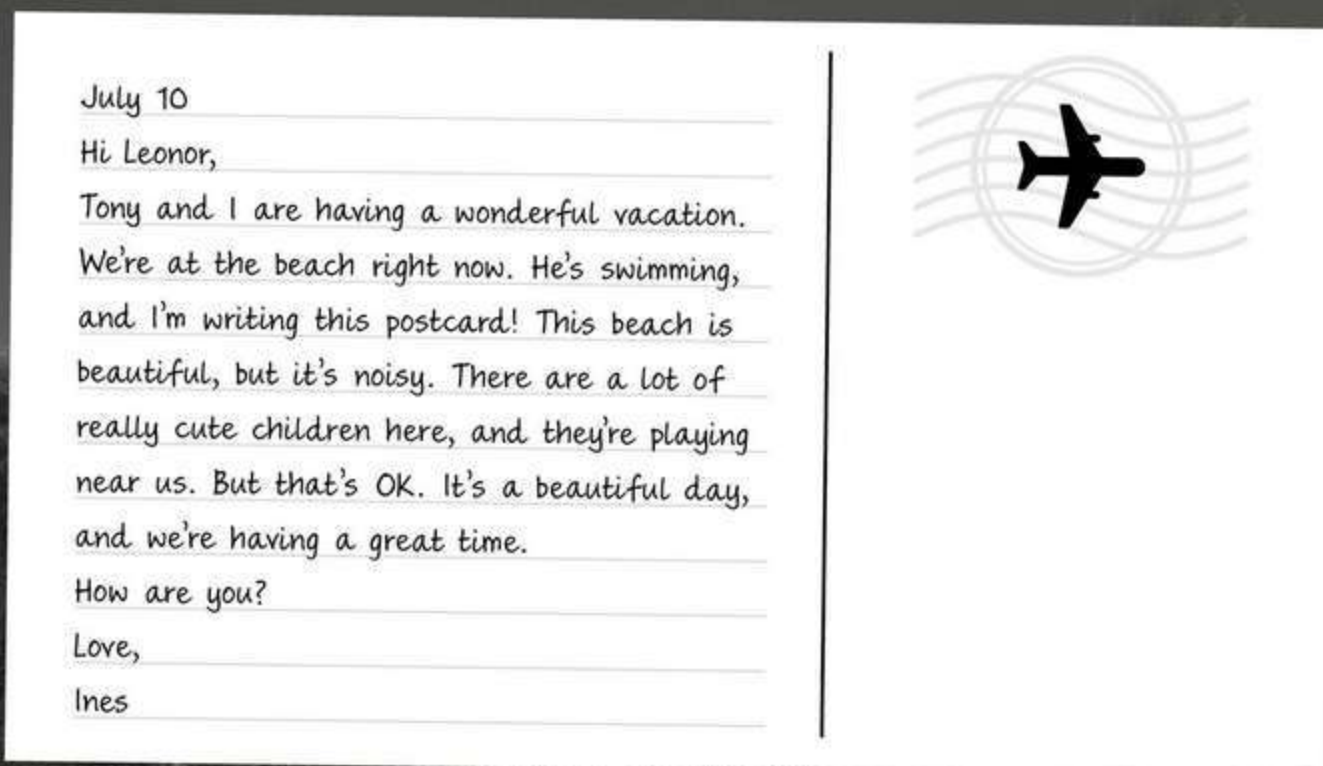 July 10
Hi Leonor,
Tony and I are having a wonderful vacation.
We're at the beach right now. He's swimming,
and I'm writing this postcard! This beach is
beautiful, but it's noisy. There are a lot of
really cute children here, and they're playing
near us. But that's OK. It's a beautiful day,
and we're having a great time.
How are you?
Love,
Ines